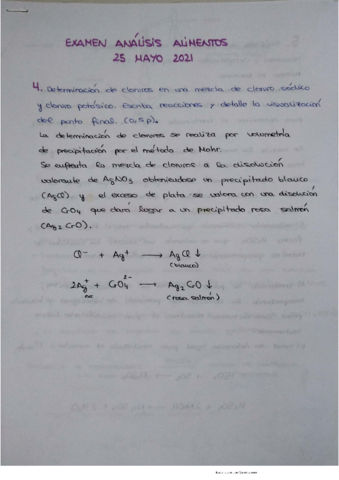 EXAMEN ANÁLISIS ALIMENTOS
25 MAYO 2021
4. Determinación de cloruros en una mezcla de cloruro sódico
y cloruro potásico. Escriba reacciones y detalle la visualización
del punto final. (0.5 p).
La determinación de cloruros se realiza por volumetría
de precipitación por el método de Mohr.
Se enfrenta la mezcla de cloruros a la disolución
valorante de AgNO3 obteniéndose un precipitado blanco
(AgCl) y el exceso de plata se valora con una disolución
de CrO4 que dará lugar a un precipitado rosa salmón
(Ag2CrO).
Cl- + Ag+ → AgCl ↓
(blanco)
2Ag+ + CrO4 2- → Ag2CrO ↓
exc (rosa salmón)